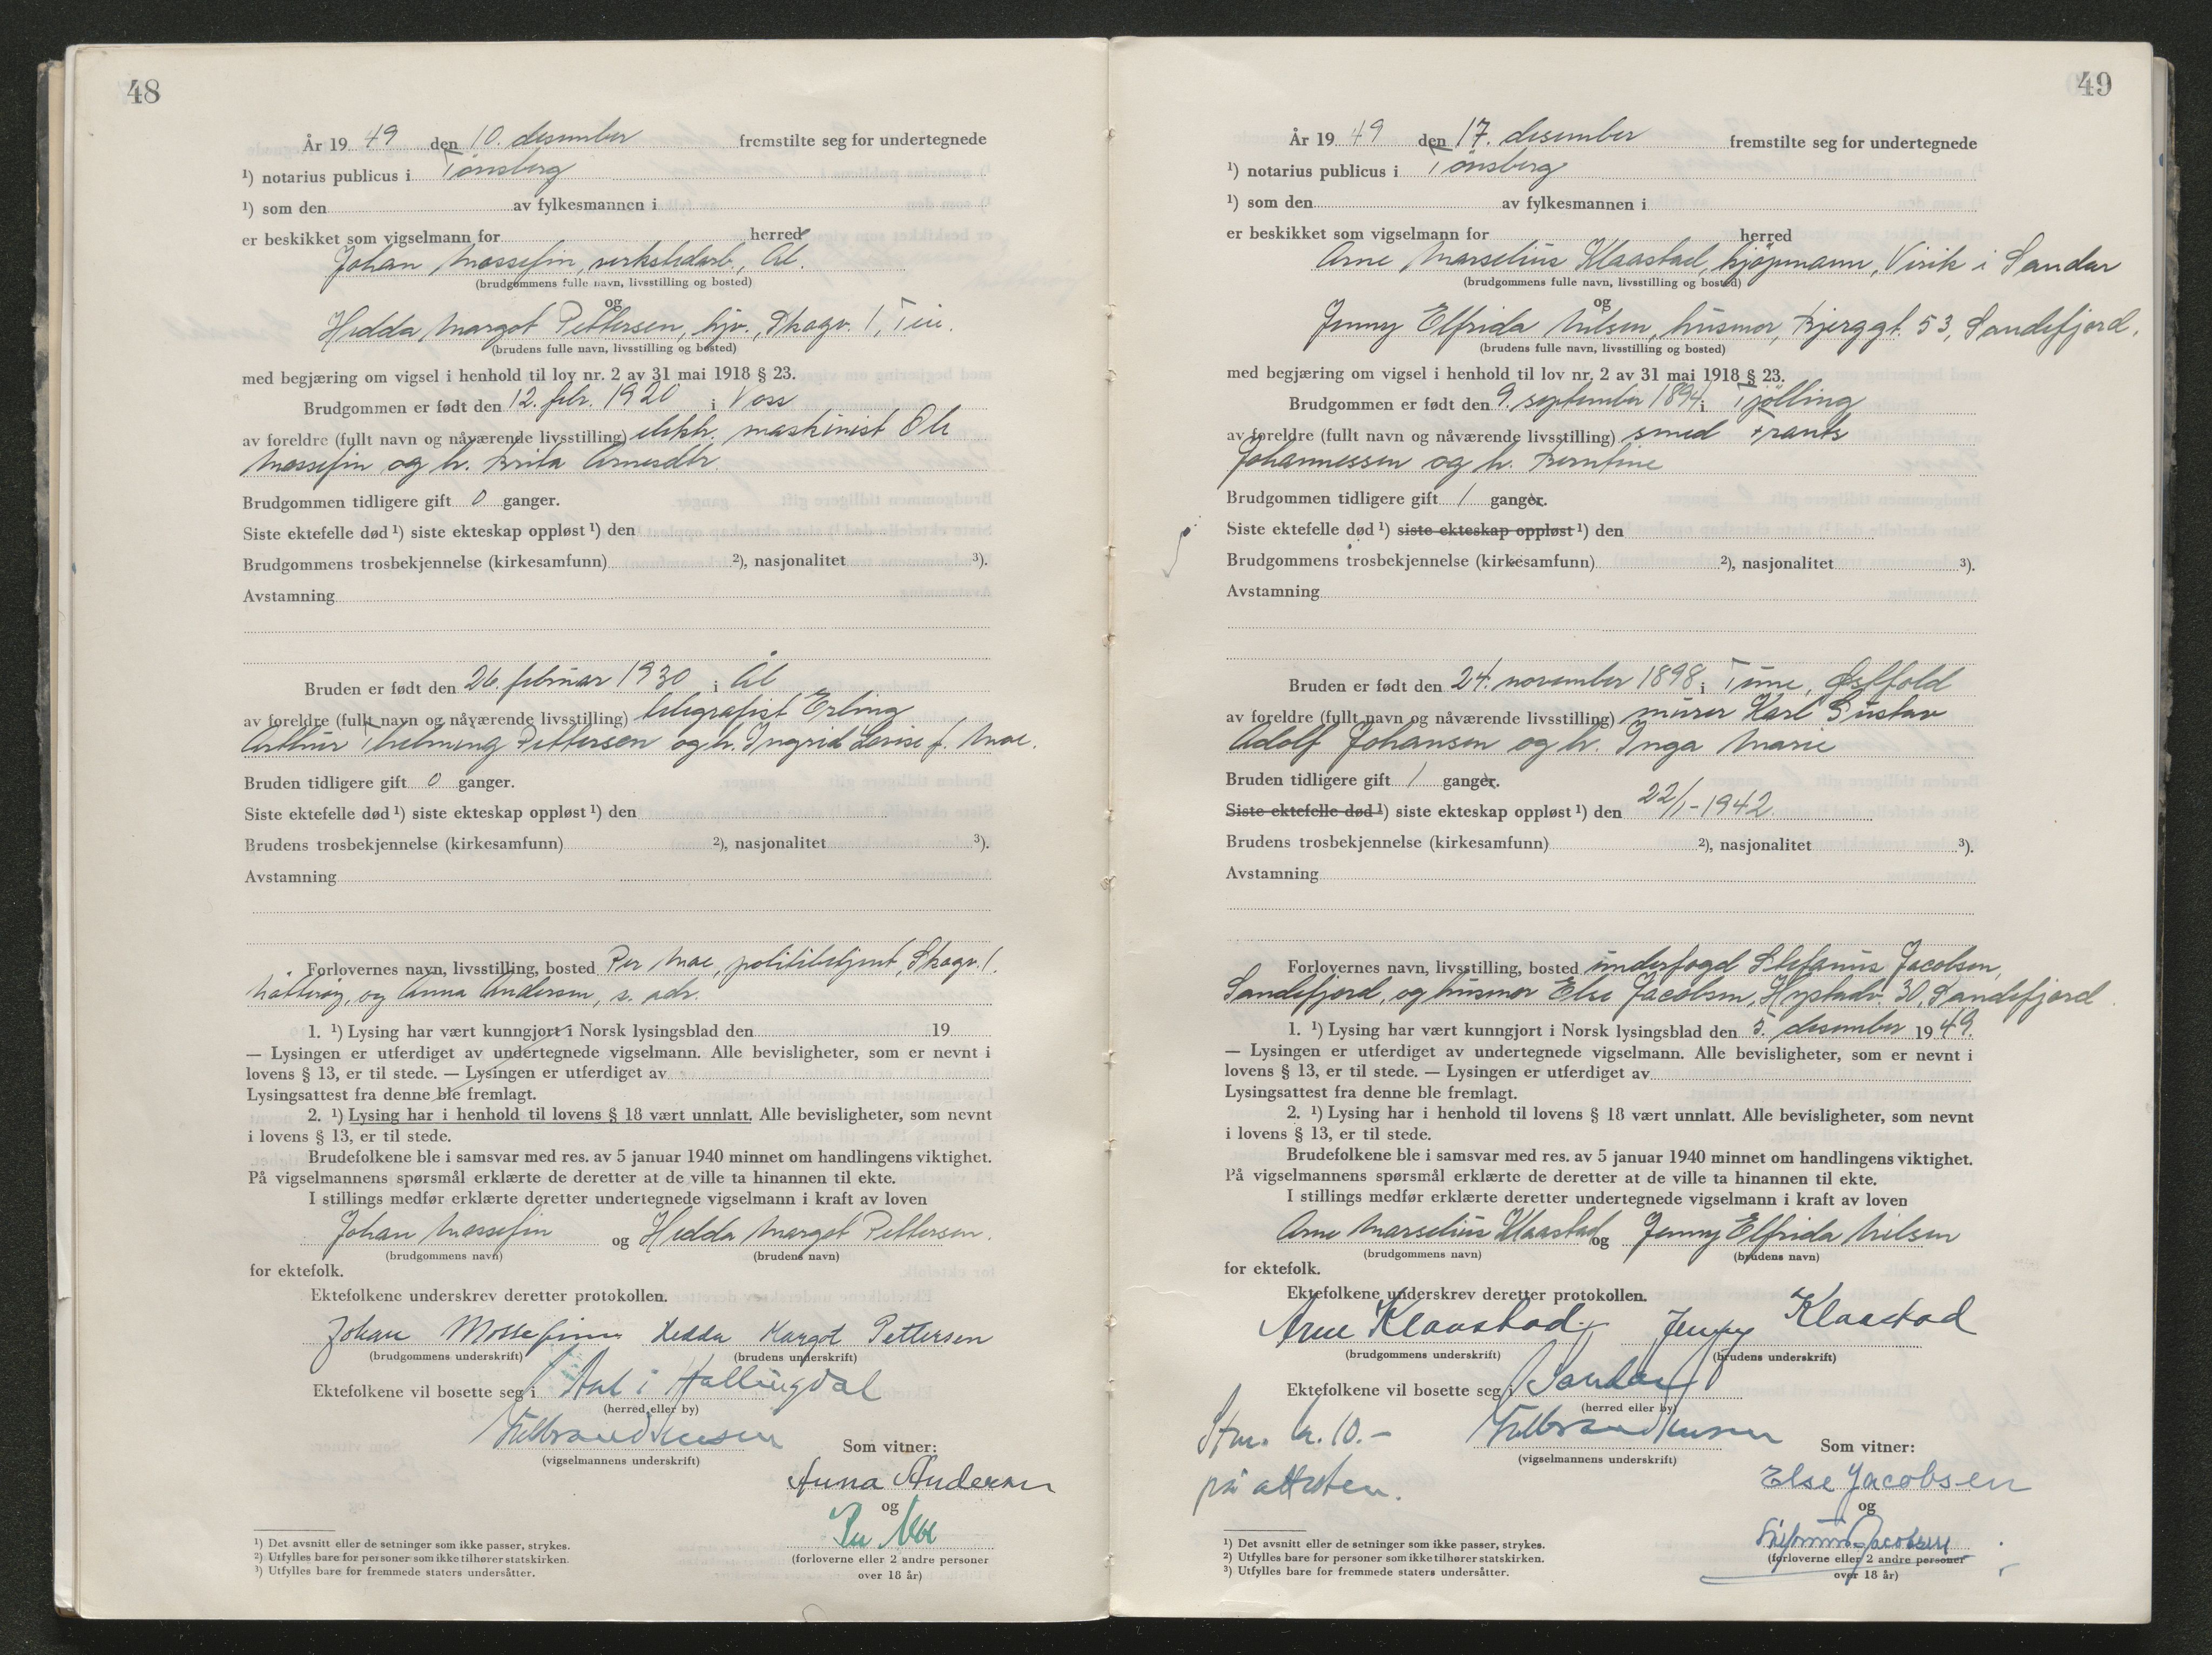 48
År 19 49 den 10. desember fremstilte seg for undertegnede
¹) notarius publicus i Tønsberg
¹) som den av fylkesmannen i
er beskikket som vigselmann for herred
Johan Mossefin, verkstedarb., Ål.
(brudgommens fulle navn, livsstilling og bosted)
og
Hedda Margot Pettersen, hjv., Skogv. 1, Teie.
(brudens fulle navn, livsstilling og bosted)
med begjæring om vigsel i henhold til lov nr. 2 av 31 mai 1918 § 23.
Brudgommen er født den 12. febr. 1920 i Voss
av foreldre (fullt navn og nåværende livsstilling) elektr. maskinist Ole
Mossefin og h. Brita Arnesdtr.
Brudgommen tidligere gift 0 ganger.
Siste ektefelle død ¹) siste ekteskap oppløst ¹) den
Brudgommens trosbekjennelse (kirkesamfunn) ²), nasjonalitet ³).
Avstamning
Bruden er født den 26. februar 1930 i Ål
av foreldre (fullt navn og nåværende livsstilling) telegrafist Erling
Arthur Thelning Pettersen og h. Ingrid Lovise f. Moe.
Bruden tidligere gift 0 ganger.
Siste ektefelle død ¹) siste ekteskap oppløst ¹) den
Brudens trosbekjennelse (kirkesamfunn) ²), nasjonalitet ³).
Avstamning
Forlovernes navn, livsstilling, bosted Per Moe, politibetjent, Skogv. 1.
Nøtterøy, og Anna Andersen, s. adr.
1. ¹) Lysing har vært kunngjort i Norsk lysingsblad den 19
— Lysingen er utferdiget av undertegnede vigselmann. Alle bevisligheter, som er nevnt i
lovens § 13, er til stede. — Lysingen er utferdiget av
Lysingsattest fra denne ble fremlagt.
2. ¹) Lysing har i henhold til lovens § 18 vært unnlatt. Alle bevisligheter, som nevnt
i lovens § 13, er til stede.
Brudefolkene ble i samsvar med res. av 5 januar 1940 minnet om handlingens viktighet.
På vigselmannens spørsmål erklærte de deretter at de ville ta hinannen til ekte.
I stillings medfør erklærte deretter undertegnede vigselmann i kraft av loven
Johan Mossefin og Hedda Margot Pettersen.
(brudgommens navn) (brudens navn)
for ektefolk.
Ektefolkene underskrev deretter protokollen.
Johan Mossefinn Hedda Margot Pettersen
(brudgommens underskrift) (brudens underskrift)
Ektefolkene vil bosette seg i Aal i Hallingdal
(herred eller by)
(vigselmannens underskrift)
Som vitner:
Anna Andersen
og
Per Moe
(forloverne eller 2 andre personer
over 18 år)
¹) Det avsnitt eller de setninger som ikke passer, strykes.
²) Utfylles bare for personer som ikke tilhører statskirken.
³) Utfylles bare for fremmede staters undersåtter.
49
År 19 49 den 17. desember fremstilte seg for undertegnede
¹) notarius publicus i Tønsberg
¹) som den av fylkesmannen i
er beskikket som vigselmann for herred
Arne Marselius Klaastad, kjøpmann, Virik i Sandar
(brudgommens fulle navn, livsstilling og bosted)
og
Jenny Elfrida Nilsen, husmor, Bjerggt. 53, Sandefjord.
(brudens fulle navn, livsstilling og bosted)
med begjæring om vigsel i henhold til lov nr. 2 av 31 mai 1918 § 23.
Brudgommen er født den 9. september 1894 i Tjølling
av foreldre (fullt navn og nåværende livsstilling) smed Frants
Johannessen og h. Berntine
Brudgommen tidligere gift 1 ganger.
Siste ektefelle død ¹) siste ekteskap oppløst ¹) den
Brudgommens trosbekjennelse (kirkesamfunn) ²), nasjonalitet ³).
Avstamning
Bruden er født den 24. november 1898 i Tune, Østfold
av foreldre (fullt navn og nåværende livsstilling) murer Karl Gustav
Adolf Johansen og h. Inga Marie
Bruden tidligere gift 1 ganger.
Siste ektefelle død ¹) siste ekteskap oppløst ¹) den 22/1-1942.
Brudens trosbekjennelse (kirkesamfunn) ²), nasjonalitet ³).
Avstamning
Forlovernes navn, livsstilling, bosted underfogd Stefanus Jacobsen,
Sandefjord, og husmor Else Jacobsen, Hystadv. 30, Sandefjord.
1. ¹) Lysing har vært kunngjort i Norsk lysingsblad den 5. desember 19 49.
— Lysingen er utferdiget av undertegnede vigselmann. Alle bevisligheter, som er nevnt i
lovens § 13, er til stede. — Lysingen er utferdiget av
Lysingsattest fra denne ble fremlagt.
2. ¹) Lysing har i henhold til lovens § 18 vært unnlatt. Alle bevisligheter, som nevnt
i lovens § 13, er til stede.
Brudefolkene ble i samsvar med res. av 5 januar 1940 minnet om handlingens viktighet.
På vigselmannens spørsmål erklærte de deretter at de ville ta hinannen til ekte.
I stillings medfør erklærte deretter undertegnede vigselmann i kraft av loven
Arne Marselius Klaastad og Jenny Elfrida Nilsen
(brudgommens navn) (brudens navn)
for ektefolk.
Ektefolkene underskrev deretter protokollen.
Arne Klaastad Jenny Klaastad
(brudgommens underskrift) (brudens underskrift)
Ektefolkene vil bosette seg i Sandar
(herred eller by)
kr. 10.-
på attesten.
(vigselmannens underskrift)
Som vitner:
Else Jacobsen
og
Stefanus Jacobsen
(forloverne eller 2 andre personer
over 18 år)
¹) Det avsnitt eller de setninger som ikke passer, strykes.
²) Utfylles bare for personer som ikke tilhører statskirken.
³) Utfylles bare for fremmede staters undersåtter.